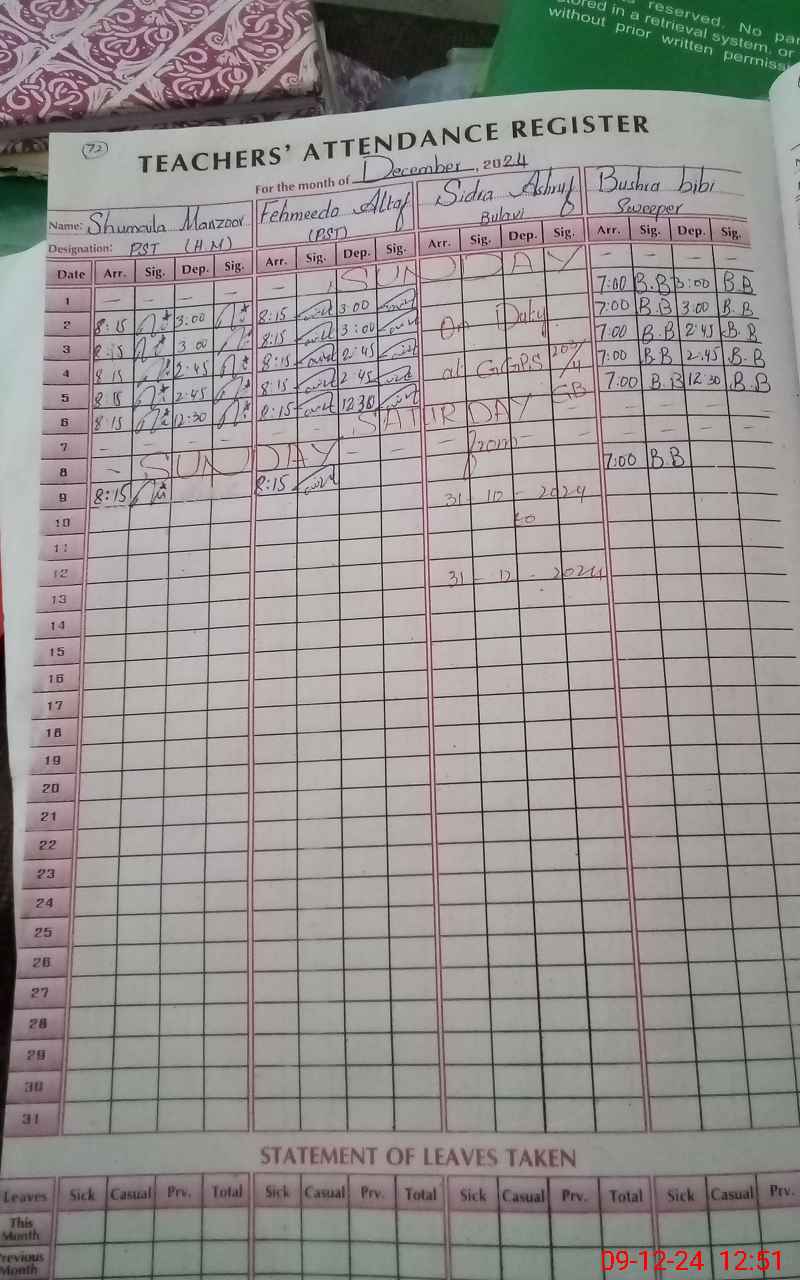 reserved. No par
stored in a retrieval system, or
without prior written permissi
72
TEACHERS' ATTENDANCE REGISTER
For the month of December, 2024
Name: Shumaila Manzoor Fehmeeda Altaf Sidra Ashraf Bushra bibi
Designation: PST (H.M) (PST) Sweeper
Date Arr. Sig. Dep. Sig. Arr. Sig. Dep. Sig. Arr. Sig. Dep. Sig. Arr. Sig. Dep. Sig.
1 — SUNDAY — — — —
2 8:15 3:00 8:15 3:00 7:00 B.B 3:00 B.B
3 8:15 3:00 8:15 3:00 On Duty 7:00 B.B 3:00 B.B
4 8:15 2:45 8:15 2:45 7:00 B.B 2:45 B.B
5 8:15 2:45 8:15 2:45 at GGPS 203/4 7:00 B.B 2:45 B.B
6 8:15 12:30 8:15 12:30 GB 7:00 B.B 12:30 B.B
7 — SATURDAY — — — —
8 — SUNDAY — — from — — — —
9 8:15 8:15 7:00 B.B
31-10-2024
10 to
11
12
31-12-2024
13
14
15
16
17
18
19
20
21
22
23
24
25
26
27
28
29
30
31
STATEMENT OF LEAVES TAKEN
Leaves Sick Casual Prv. Total Sick Casual Prv. Total Sick Casual Prv. Total Sick Casual Prv.
This Month
Previous Month
09-12-24 12:51